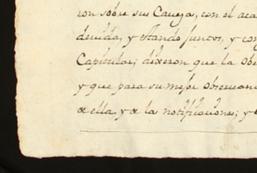 con sobre sus Caveças, con el aca
devido, y estando juntos, y con
Capitular; dixeron que la obe
y que para su mejor observanc
de ella, y de la notificaciones, y